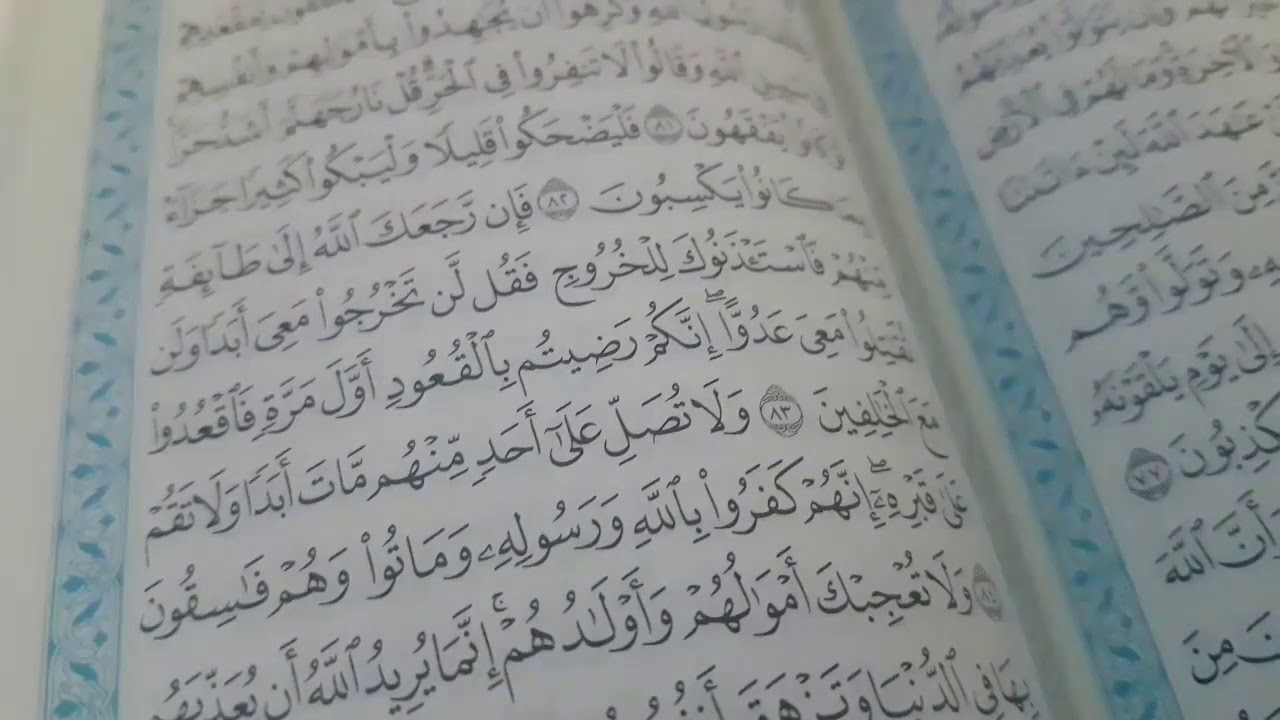 وَٱلْأَخِرَةِ وَمَا لَهُمْ فِى ٱلْأَرْضِ
عَٰهَدَ ٱللَّهَ لَئِنْ ءَاتَىٰنَا
مِنَ ٱلصَّٰلِحِينَ
وَتَوَلَّوا۟ وَّهُم
إِلَىٰ يَوْمِ يَلْقَوْنَهُۥ
يَكْذِبُونَ ٧٧
وَأَنَّ ٱللَّهَ
مِنَ
وَكَرِهُوٓا۟ أَن يُجَٰهِدُوا۟ بِأَمْوَٰلِهِمْ وَأَنفُسِهِمْ
سَبِيلِ ٱللَّهِ وَقَالُوا۟ لَا تَنفِرُوا۟ فِى ٱلْحَرِّ قُلْ نَارُ جَهَنَّمَ أَشَدُّ حَرًّا
كَانُوا۟ يَفْقَهُونَ ٨١ فَلْيَضْحَكُوا۟ قَلِيلًا وَلْيَبْكُوا۟ كَثِيرًا جَزَآءًۢ
كَانُوا۟ يَكْسِبُونَ ٨٢ فَإِن رَّجَعَكَ ٱللَّهُ إِلَىٰ طَآئِفَةٍ
مِّنْهُمْ فَٱسْتَـْٔذَنُوكَ لِلْخُرُوجِ فَقُل لَّن تَخْرُجُوا۟ مَعِىَ أَبَدًا وَلَن
تُقَٰتِلُوا۟ مَعِىَ عَدُوًّا ۖ إِنَّكُمْ رَضِيتُم بِٱلْقُعُودِ أَوَّلَ مَرَّةٍ فَٱقْعُدُوا۟
مَعَ ٱلْخَٰلِفِينَ ٨٣ وَلَا تُصَلِّ عَلَىٰٓ أَحَدٍ مِّنْهُم مَّاتَ أَبَدًا وَلَا تَقُمْ
عَلَىٰ قَبْرِهِۦٓ ۖ إِنَّهُمْ كَفَرُوا۟ بِٱللَّهِ وَرَسُولِهِۦ وَمَاتُوا۟ وَهُمْ فَٰسِقُونَ
٨٤ وَلَا تُعْجِبْكَ أَمْوَٰلُهُمْ وَأَوْلَٰدُهُمْ ۚ إِنَّمَا يُرِيدُ ٱللَّهُ أَن يُعَذِّبَهُم
بِهَا فِى ٱلدُّنْيَا وَتَزْهَقَ